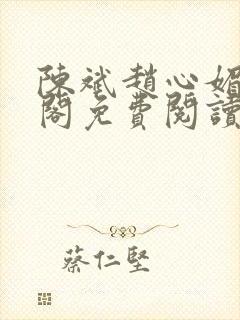 陳斌趙心媚
閣免費閱讀
蔡仁堅